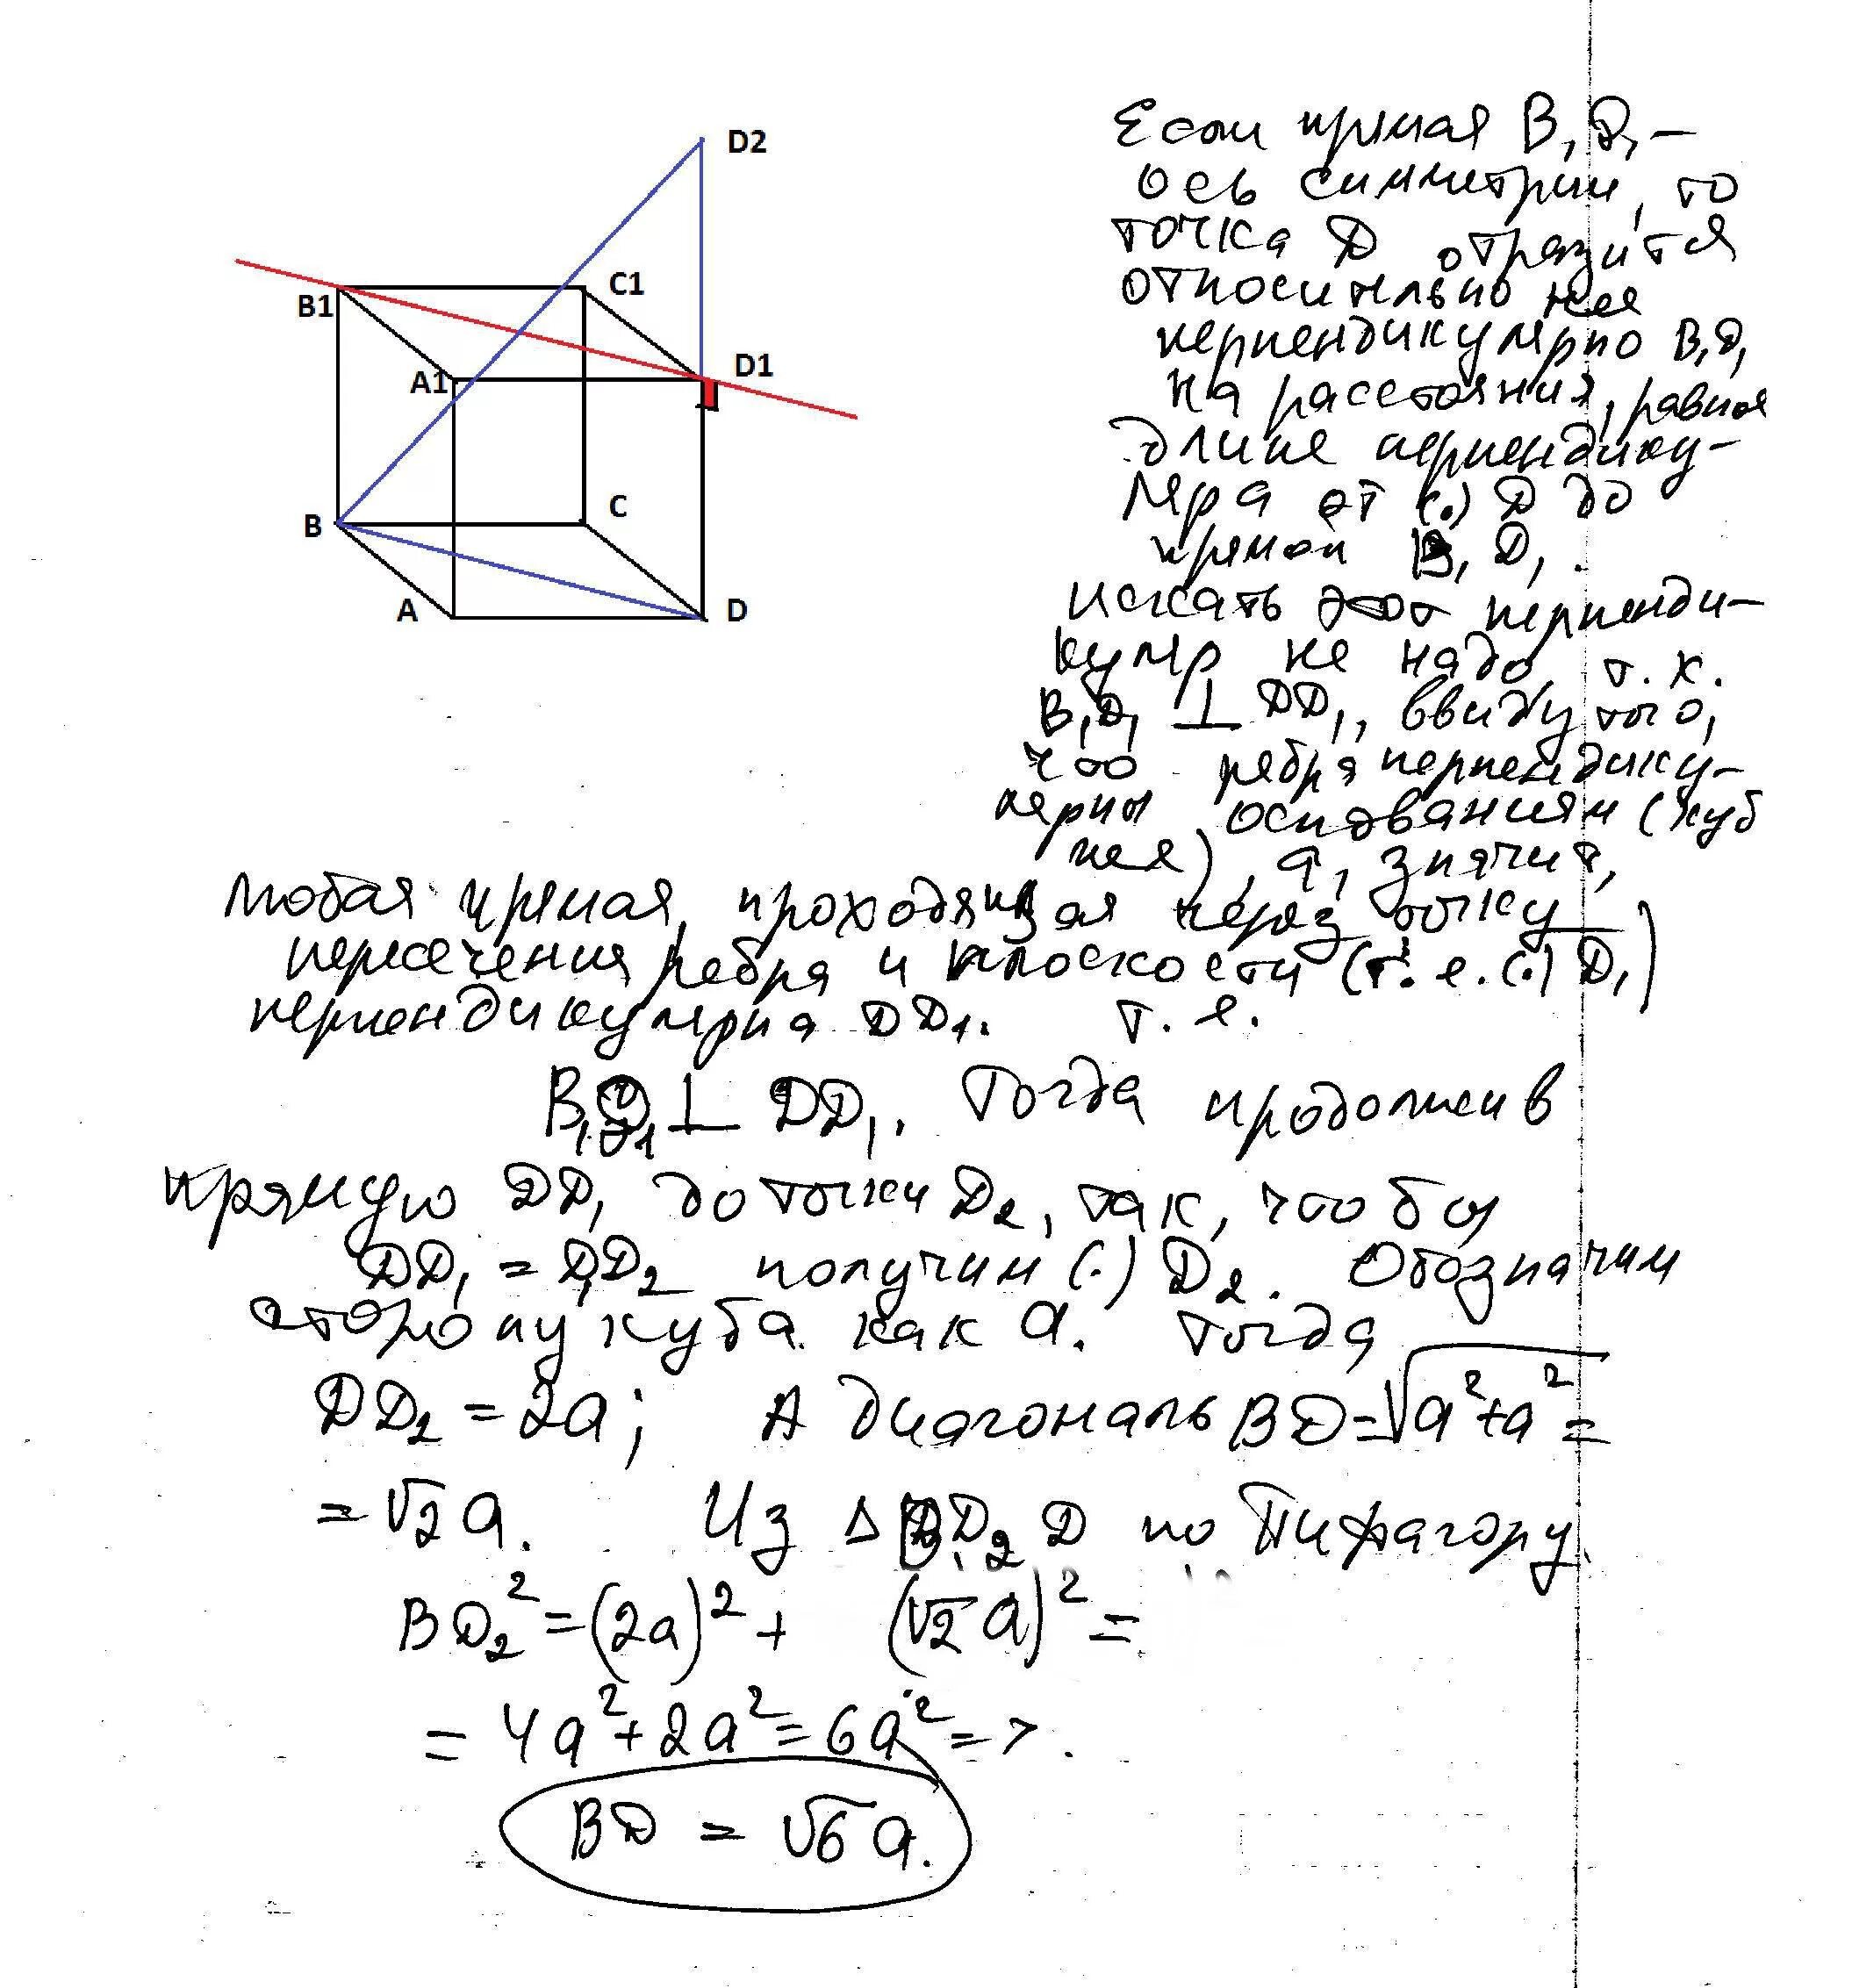 D2
C1
B1
D1
A1
C
B
A
D
Если прямая B₁D₁ –
ось симметрии, то
точка D отразится
относительно нее
перпендикулярно B₁D₁
на расстояния, равное
длине перпендику-
ляра от (.) D до
прямой B₁D₁.
Искать этот перпенди-
куляр не надо, т.к.
B₁D₁ ⊥ DD₁, ввиду того,
что ребра перпендику-
лярны основаниям (куб
же), а, значит,
любая прямая, проходящая через точку
пересечения ребра и плоскости (т.е. (.) D₁)
перпендикулярна DD₁. т.е.
B₁D₁ ⊥ DD₁. Тогда продолжив
прямую DD₁ до точки D₂, так, чтобы
DD₁ = D₁D₂ получим (.) D₂. Обозначим
сторону куба как a. Тогда
DD₂ = 2a; А диагональ BD = √(a²+a²) =
= √2 a. Из Δ BD₂D по Пифагору
BD₂² = (2a)² + (√2 a)² =
= 4a² + 2a² = 6a² => .
BD = √6 a.